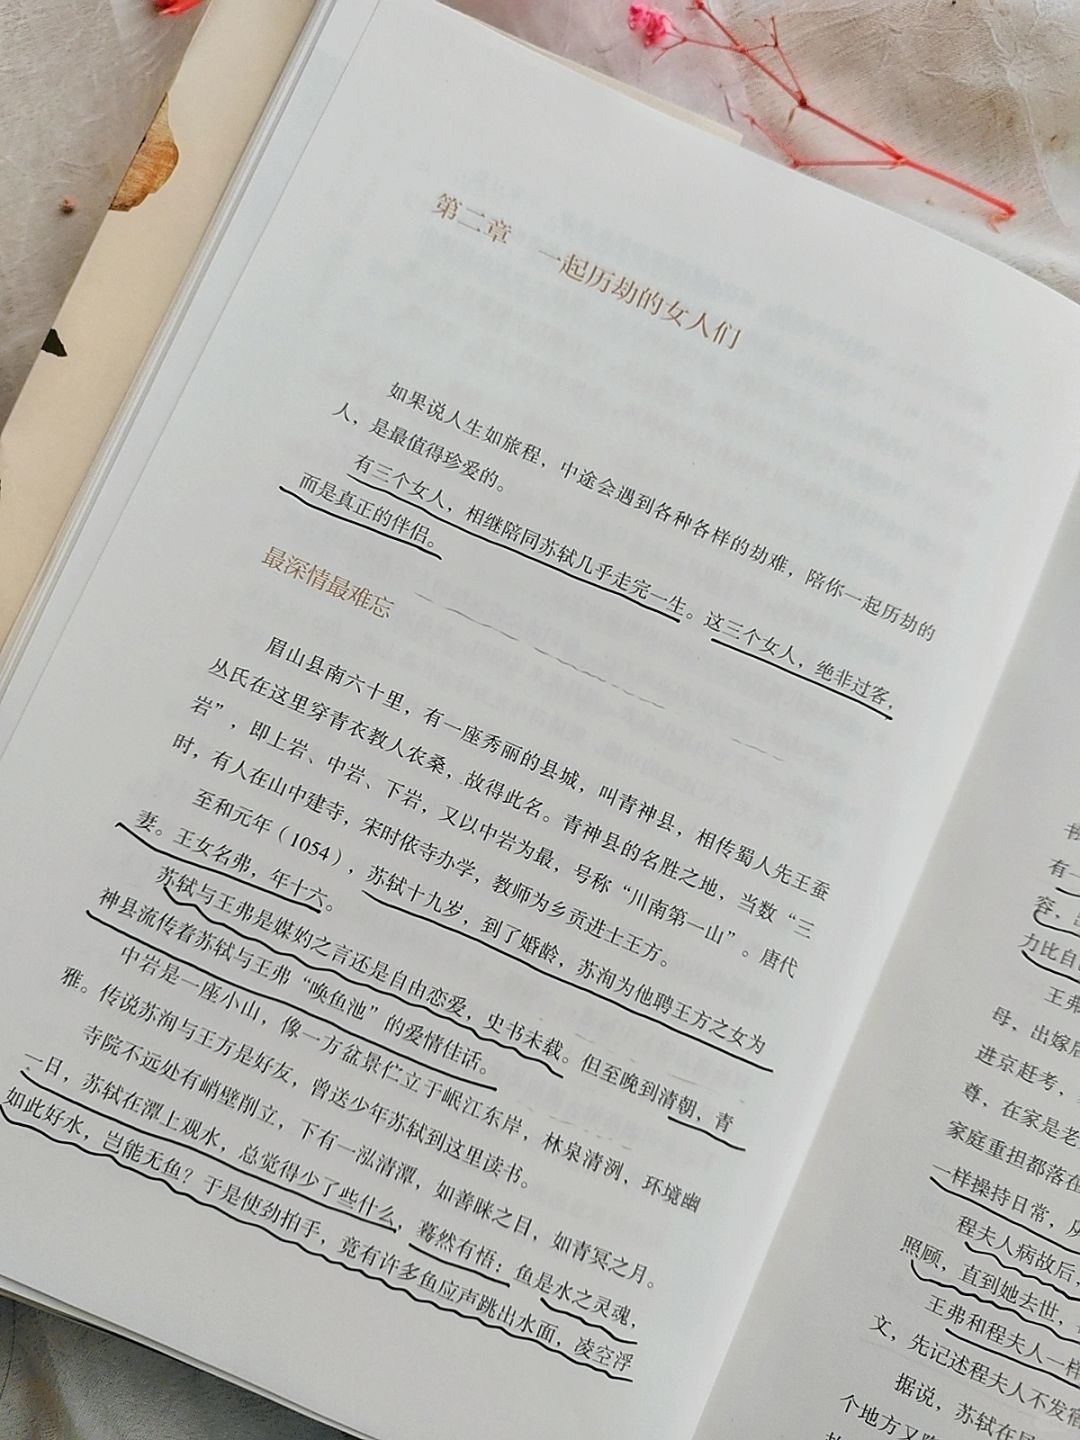 第二章 一起历劫的女人们
如果说人生如旅程，中途会遇到各种各样的劫难，陪你一起历劫的
人，是最值得珍爱的。
有三个女人，相继陪同苏轼几乎走完一生。这三个女人，绝非过客，
而是真正的伴侣。
最深情最难忘
眉山县南六十里，有一座秀丽的县城，叫青神县，相传蜀人先王蚕
丛氏在这里穿青衣教人农桑，故得此名。青神县的名胜之地，当数“三
岩”，即上岩、中岩、下岩，又以中岩为最，号称“川南第一山”。唐代
时，有人在山中建寺，宋时依寺办学，教师为乡贡进士王方。
至和元年（1054），苏轼十九岁，到了婚龄，苏洵为他聘王方之女为
妻。王女名弗，年十六。
苏轼与王弗是媒妁之言还是自由恋爱，史书未载。但至晚到清朝，青
神县流传着苏轼与王弗“唤鱼池”的爱情佳话。
中岩是一座小山，像一方盆景伫立于岷江东岸，林泉清洌，环境幽
雅。传说苏洵与王方是好友，曾送少年苏轼到这里读书。
寺院不远处有峭壁削立，下有一泓清潭，如善睐之目，如青冥之月。
一日，苏轼在潭上观水，总觉得少了些什么，蓦然有悟：鱼是水之灵魂，
如此好水，岂能无鱼？于是使劲拍手，竟有许多鱼应声跳出水面，凌空浮
有一
容，
力比自
王弗
母，出嫁后
进京赶考，
尊，在家是老
家庭重担都落在
一样操持日常，从
程夫人病故后，
照顾，直到她去世，
王弗和程夫人一样
文，先记述程夫人不发宿
据说，苏轼在
个地方又